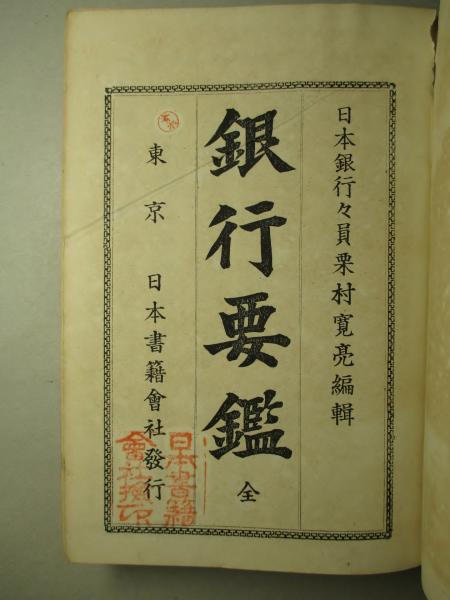 日本銀行々員栗村寛亮編輯
銀行要鑑 全
東京 日本書籍會社發行
日本書籍
會社検印